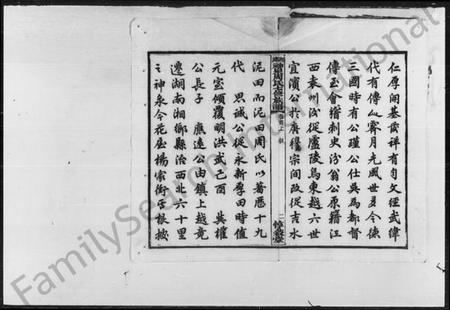 仁厚開基發祥有自文經武緯
代有傳人霽月光風世多令德
三國時有公瑾公仕吳為都督
傳至會稽刺史汾翁公原籍江
西袁州汾從廬陵烏東越六世
宜濱公於唐僖宗間改從吉水
泥田而泥田周氏以著歷十九
代 思誠公從永新厚田時值
元室傾覆明洪武己酉 其權
公長子 應遠公由鎮上越竟
遷湖南湘鄉縣治西北六十里
之神泉今花屋楊家衝子根按
周氏六修族譜
卷首上
二
FamilySearch International